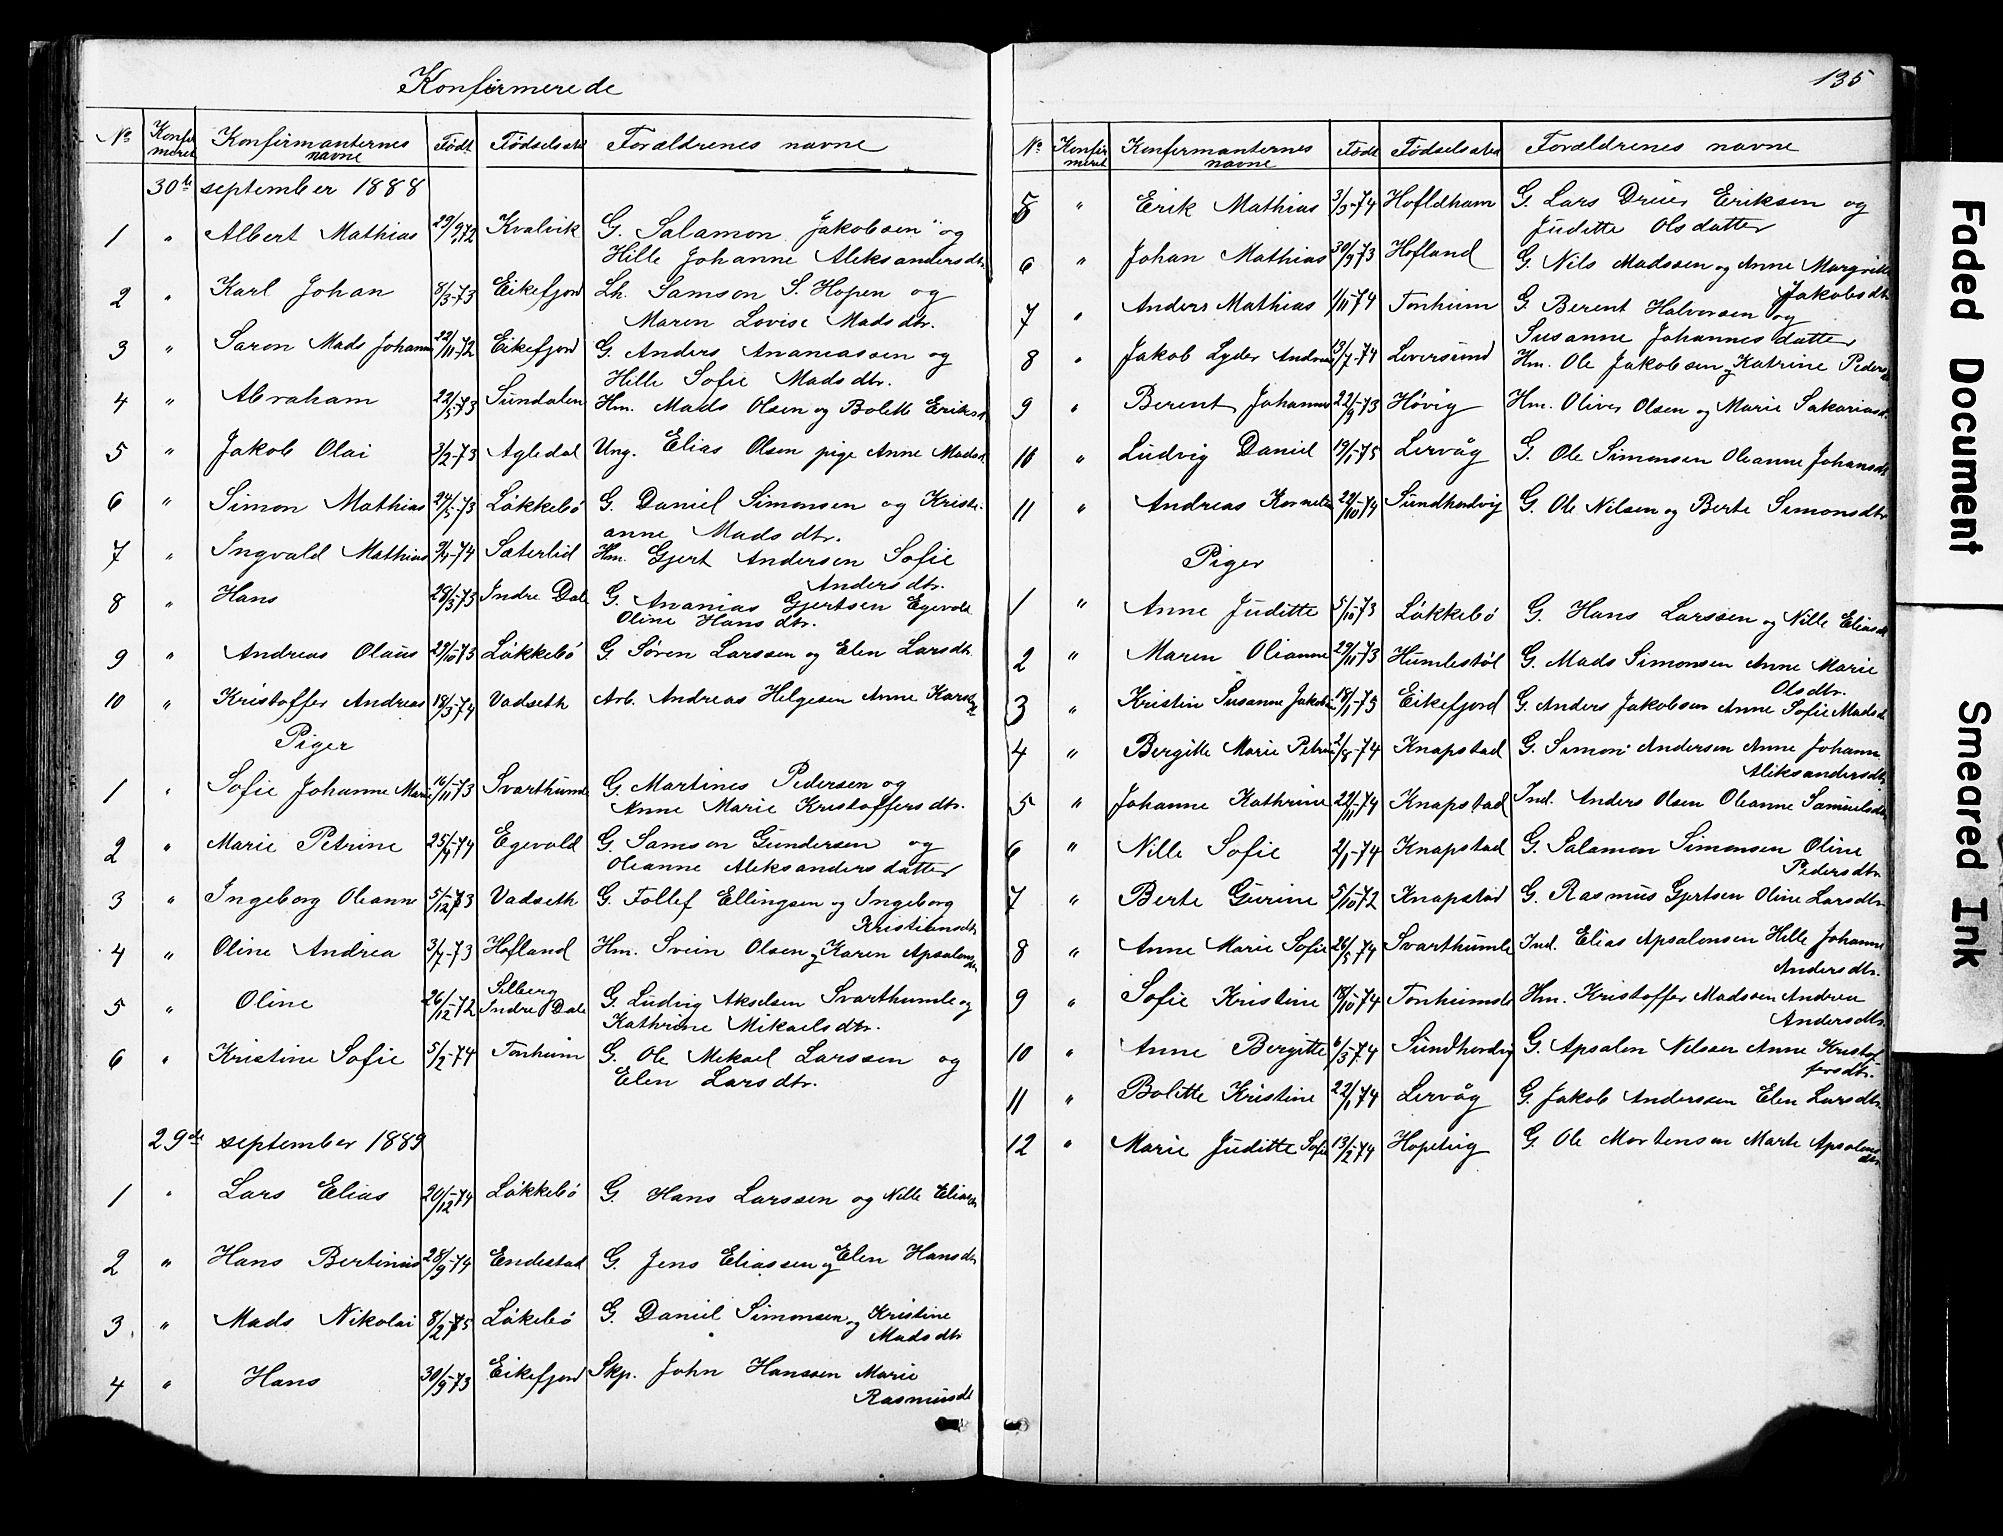 Konfirmerede
No Konfirmeret Konfirmanternes navne Født Fødselssted Forældrenes navne
30te september 1888
1 " Albert Mathias 29/9-72 Kvalvik G. Salamon Jakobsen og
Hille Johanne Aleksandersdtr.
2 " Karl Johan 8/3-73 Eikefjord Lh. Samson S. Hopen og
Maren Lovise Madsdtr.
3 " Saron Mads Johann 22/11-72 Eikefjord G. Anders Ananiassen og
Hille Sofie Madsdtr.
4 " Abraham 22/5-73 Sundalen Hm. Mads Olsen og Bolette Eriksd
5 " Jakob Olai 3/2-73 Agledal Ung. Elias Olsen pige Anne Madsd
6 " Simon Mathias 24/5-73 Løkkebø G. Daniel Simonsen og Kristi-
anne Madsdtr.
7 " Ingvald Mathias 9/4-74 Sæterlid Hm. Gjert Andersen Sofie
Andersdtr.
8 " Hans 28/3-73 Indre Dale G. Ananias Gjertsen Egevold
Oline Hansdtr.
9 " Andreas Olaus 29/10-73 Løkkebø G Søren Larssen og Elen Larsdtr.
10 " Kristoffer Andreas 18/3-74 Vadseth Arb. Andreas Helgesen Anne
Piger
1 " Sofie Johanne Marie 16/11-73 Svarthumle G. Martines Pedersen og
Anne Marie Kristoffersdtr.
2 " Marie Petrine 25/4-74 Egevold G. Samson Gundersen og
Oleanne Aleksandersdatter
3 " Ingeborg Oleanne 5/12-73 Vadseth G. Tollef Ellingsen og Ingeborg
Kristiansdtr
4 " Oline Andrea 3/7-73 Hofland Hm. Svein Olsen og Karen Apsalonsdtr
5 " Oline 26/12-72 Selberg Indre Dale G. Ludvig Akselsen Svarthumle og
Kathrine Mikaelsdtr.
6 " Kristine Sofie 5/2-74 Tonheim G. Ole Mekael Larssen og
Elen Larsdtr.
29de september 1889
1 " Lars Elias 20/12-74 Løkkebø G. Hans Larssen og Nille Eliasdtr
2 " Hans Bertinius 28/9-74 Endestad G. Jens Eliassen og Elen Hansdtr
3. " Mads Nikolai 8/2-75 Løkebø G. Daniel Simonsen og Kristine
Madsdtr
4 " Hans 30/9-73 Eikefjord Skp. John Hanssen Marie
Rasmusdt
135
No Konfirmeret Konfirmanternes navne Født Fødselssted Forældrenes navne
5 " Erik Mathias 3/3-74 Hofldham G. Lars Eriksen og
Juditte Olsdatter
6 " Johan Mathias 30/9-73 Hofland G. Nils Madssen og Anne Margritte
Jakobsdtr
7 " Anders Mathias 1/11-74 Tonheim G. Berent Halvorsen og
Susanne Johannesdatter
8 " Jakob Lyder Andreas 13/7-74 Leversund Hm. Ole Jakobsen og Katrine Pedersd
9 " Berent Johannes 22/9-73 Høvig Hm. Oliver Olsen og Marie Sakariasd.
10 " Ludvig Daniel 19/1-75 Lervåg G. Ole Simonsen Oleanne Johansdtr
11 " Andreas Kornelius 22/10-74 Sundhordvig G. Ole Nilsen og Berte Simonsdtr
Piger
1 " Anne Juditte 5/10-73 Løkkebø G. Hans Larssen og Nille Eliasdtr
2 " Maren Olianne 29/11-73 Humlestøl G. Mads Simonsen Anne Marie
Olsdtr.
3 " Kristin Susanne Jakobine 18/1-73 Eikefjord G. Anders Jakobsen Anne Sofie Madsd
4 " Bergitte Marie Petrine 2/8-74 Knapstad G. Simon Andersen Anne Johanne
Aleksandersdtr.
5 " Johanne Kathrine 22/11-74 Knapstad Ind. Anders Olsen Oleanne Samuelsdtr
6 " Nille Sofie 2/1-74 Knapstad G. Salamon Simonsen Oline
Pedersdtr.
7 " Berte Gurine 5/10-72 Knapstad G. Rasmus Gjertsen Oline Larsdtr
8 " Anne Marie Sofie 26/5-74 Svarthumle Ind. Elias Apsalonsen Hille Johanne
Andersdtr.
9 " Sofie Kristine 18/10-74 Tonheimsle Hm. Kristoffer Madssen Andrea
Andersdtr.
10 " Anne Bergitte 6/3-74 Sundhordvig G. Apsalon Nilssen Anne Kristof-
fersdtr.
11 " Bolitte Kristine 22/1-74 Lervåg G. Jakob Anderssen Elen Larsdtr.
12 " Marie Juditte Sofie 13/2-74 Hopetvig G. Ole Mortensen Marte Apsalonsdtr
Faded Document
Smeared Ink